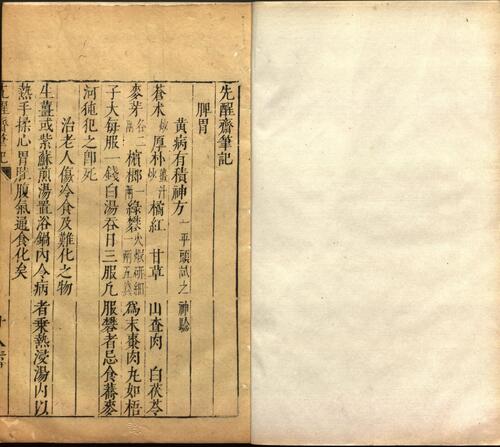 先醒齋筆記
脾胃
黃病有積神方 一平頭試之神驗
蒼朮 炒 厚朴 薑汁炒 橘紅 甘草 山査肉 白茯苓
麥芽 各二兩 檳榔 一兩 綠礬 火煅硏細一兩五錢 爲末棗肉丸如梧
子大每服一錢白湯吞日三服凡服礬者忌食蕎麥
河㹠犯之卽死
治老人傷冷食及難化之物
生薑或紫蘇煎湯置浴鍋內令病者乘熱浸湯內以
熱手揉心胃肚腹氣通食化矣
先醒齋筆記